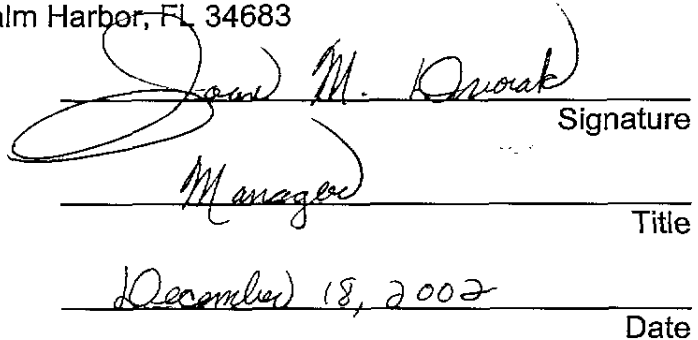 alm Harbor, FL 34683
Joan M. Dvorak
Signature
Manager
Title
December 18, 2002
Date